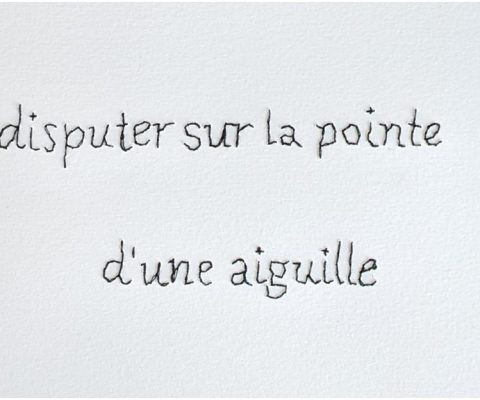 disputer sur la pointe
d'une aiguille